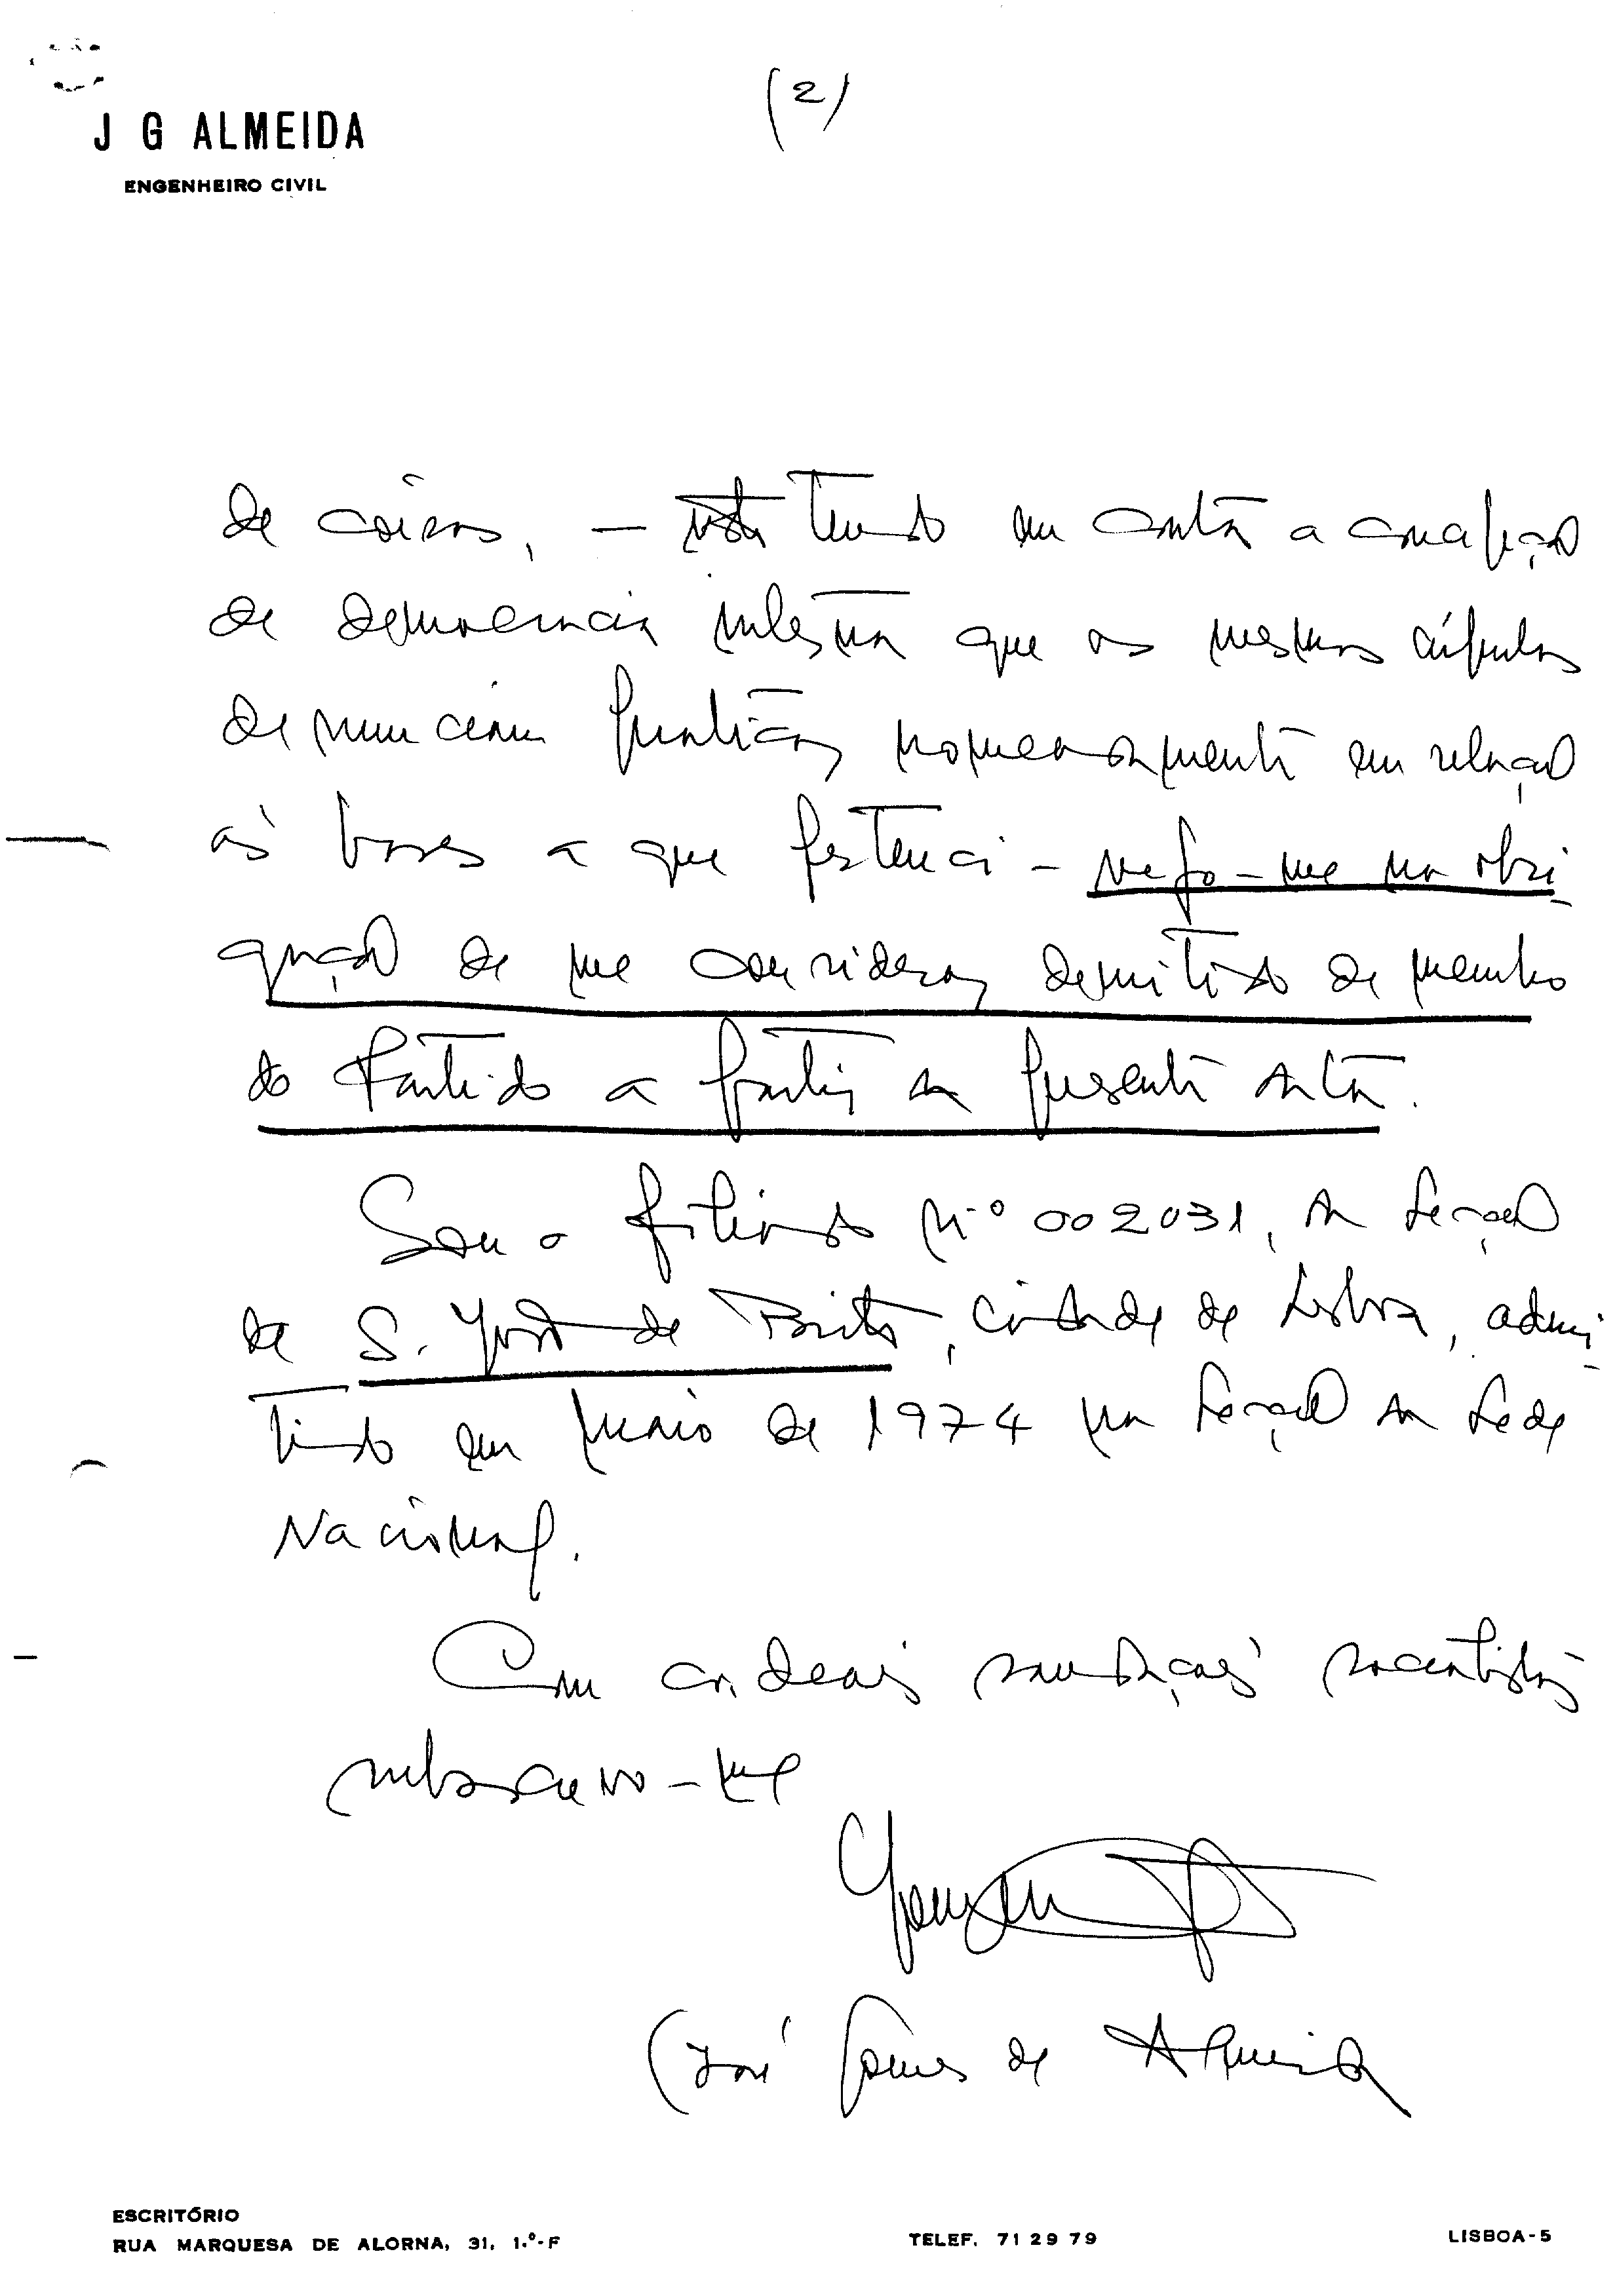 (2)
J G ALMEIDA
ENGENHEIRO CIVIL
de coisas, – tendo em conta a
de democracia interna que os mesmos
denunciam praticar, nomeadamente em relação
às bases a que pertenci – vejo-me na obri-
gação de me considerar demitido de membro
do Partido a partir da presente data.
Sou o filiado n.º 002031, da Secção
de S. João de Brito, cidade de Lisboa, admi-
tido em Maio de 1974 na Secção da Sede
Nacional.
Com cordeais saudações socialistas
subscrevo-me
(José Gomes de Almeida
ESCRITÓRIO
RUA MARQUESA DE ALORNA, 31, 1.º-F
TELEF. 71 29 79
LISBOA-5